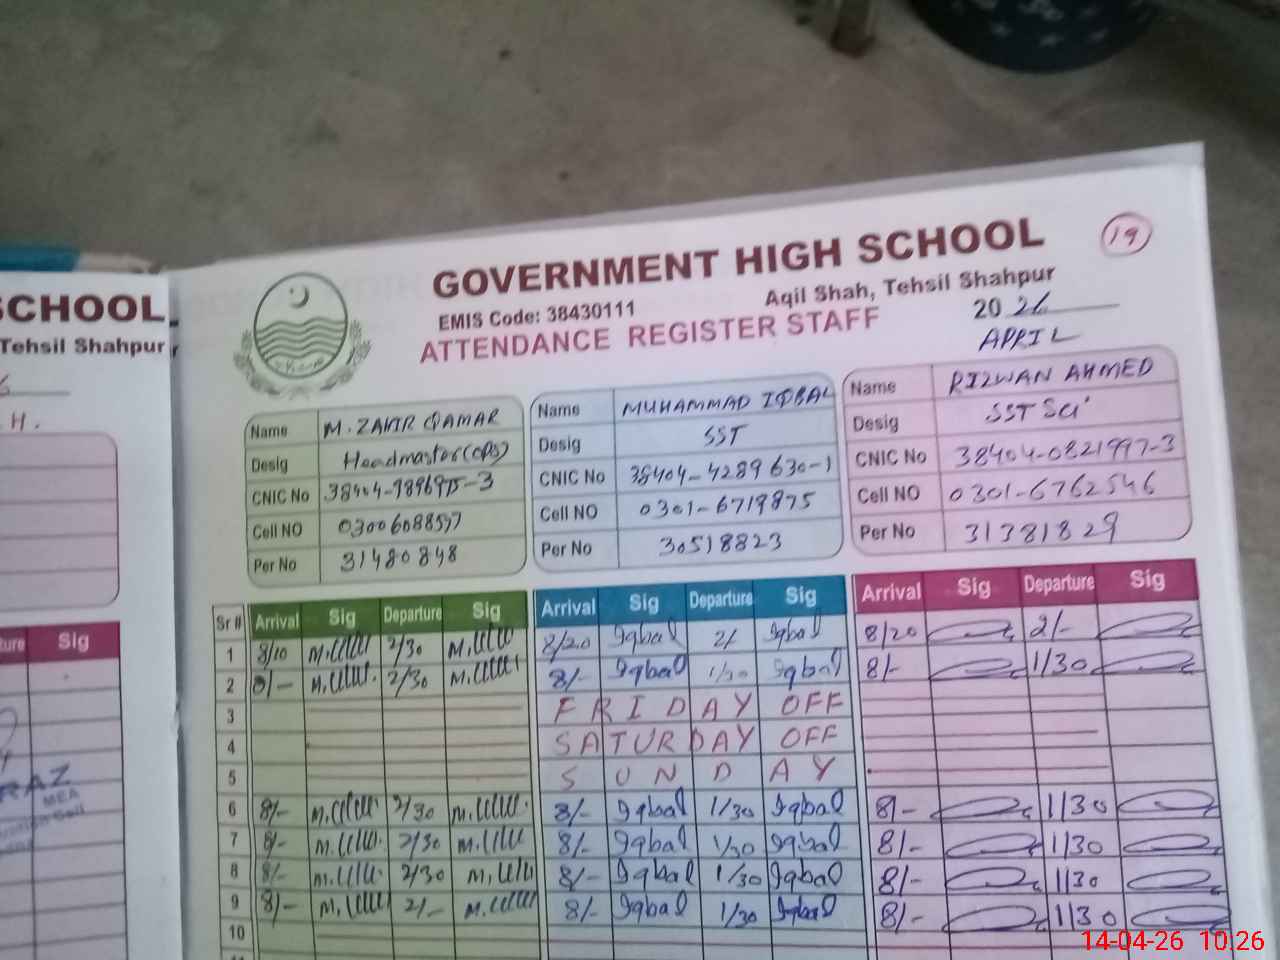 SCHOOL
Tehsil Shahpur
H.
Sig
RAZ
MEA
GOVERNMENT HIGH SCHOOL
19
EMIS Code: 38430111
Aqil Shah, Tehsil Shahpur
ATTENDANCE REGISTER STAFF
2026
APRIL
Name M. ZAKIR QAMAR
Desig Headmaster(OPS)
CNIC No
Cell NO
Per No 31480848
Name MUHAMMAD IQBAL
Desig SST
CNIC No 38404-4289630-1
Cell NO 0301-6719875
Per No 30518823
Name RIZWAN AHMED
Desig SST Sci
CNIC No 38404-0821997-3
Cell NO 0301-6762546
Per No 31381829
Sr # Arrival Sig Departure Sig Arrival Sig Departure Sig Arrival Sig Departure Sig
1 8/10 2/30 8/20 Iqbal 2/ Iqbal 8/20 2/-
2 8/- 2/30 8/- Iqbal 1/30 Iqbal 8/- 1/30
3 FRIDAY OFF
4 SATURDAY OFF
5 SUNDAY
6 8/- 2/30 8/- Iqbal 1/30 Iqbal 8/- 1/30
7 8/- 2/30 8/- Iqbal 1/30 Iqbal 8/- 1/30
8 8/- 2/30 8/- Iqbal 1/30 Iqbal 8/- 1/30
9 8/- 2/- 8/- Iqbal 1/30 Iqbal 8/- 1/30
10
14-04-26 10:26